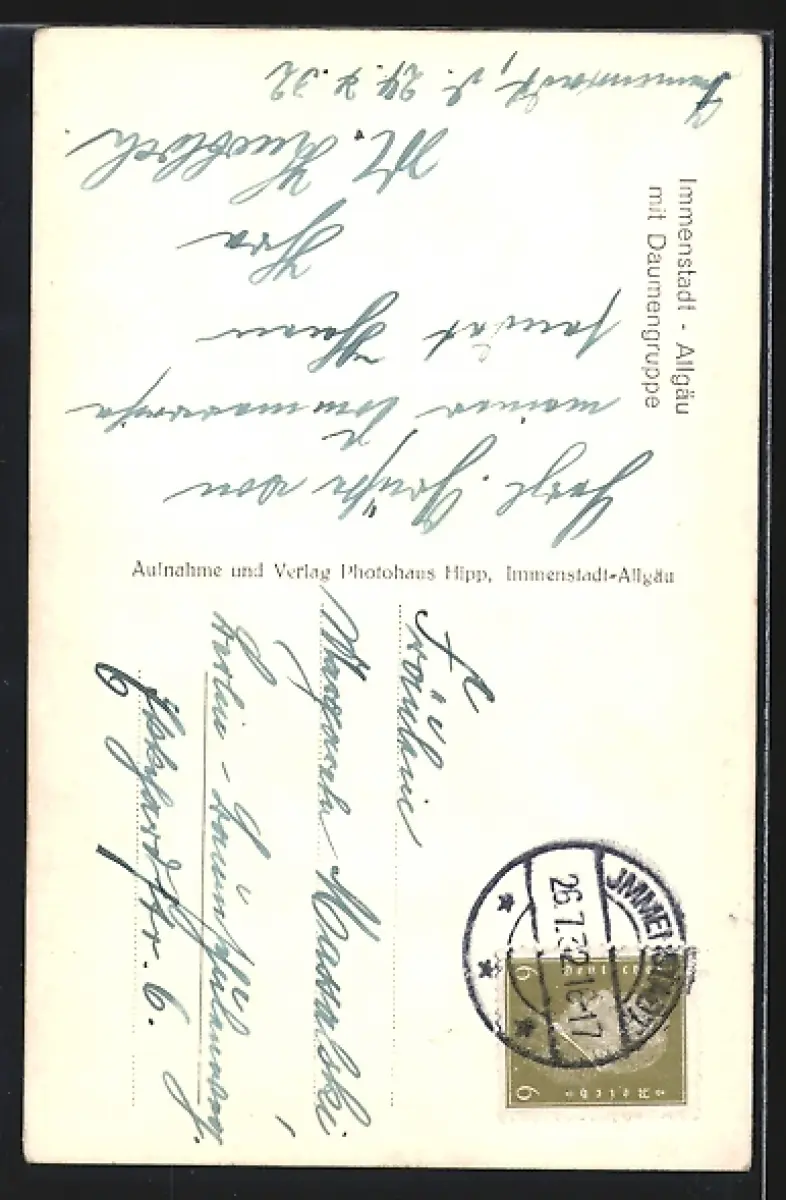 Immenstadt, d. 24.7.32
Herzl. Grüße von
meiner Sommerreise
sendet Ihnen
Ihre
Immenstadt - Allgäu
mit Daumengruppe
Aufnahme und Verlag Photohaus Hipp, Immenstadt-Allgäu
Fräulein
Margarete Kassalski
Berlin -
6
str. 6.
IMMENSTADT
26.7.32 16-17
6 Deutsches 6
Reich